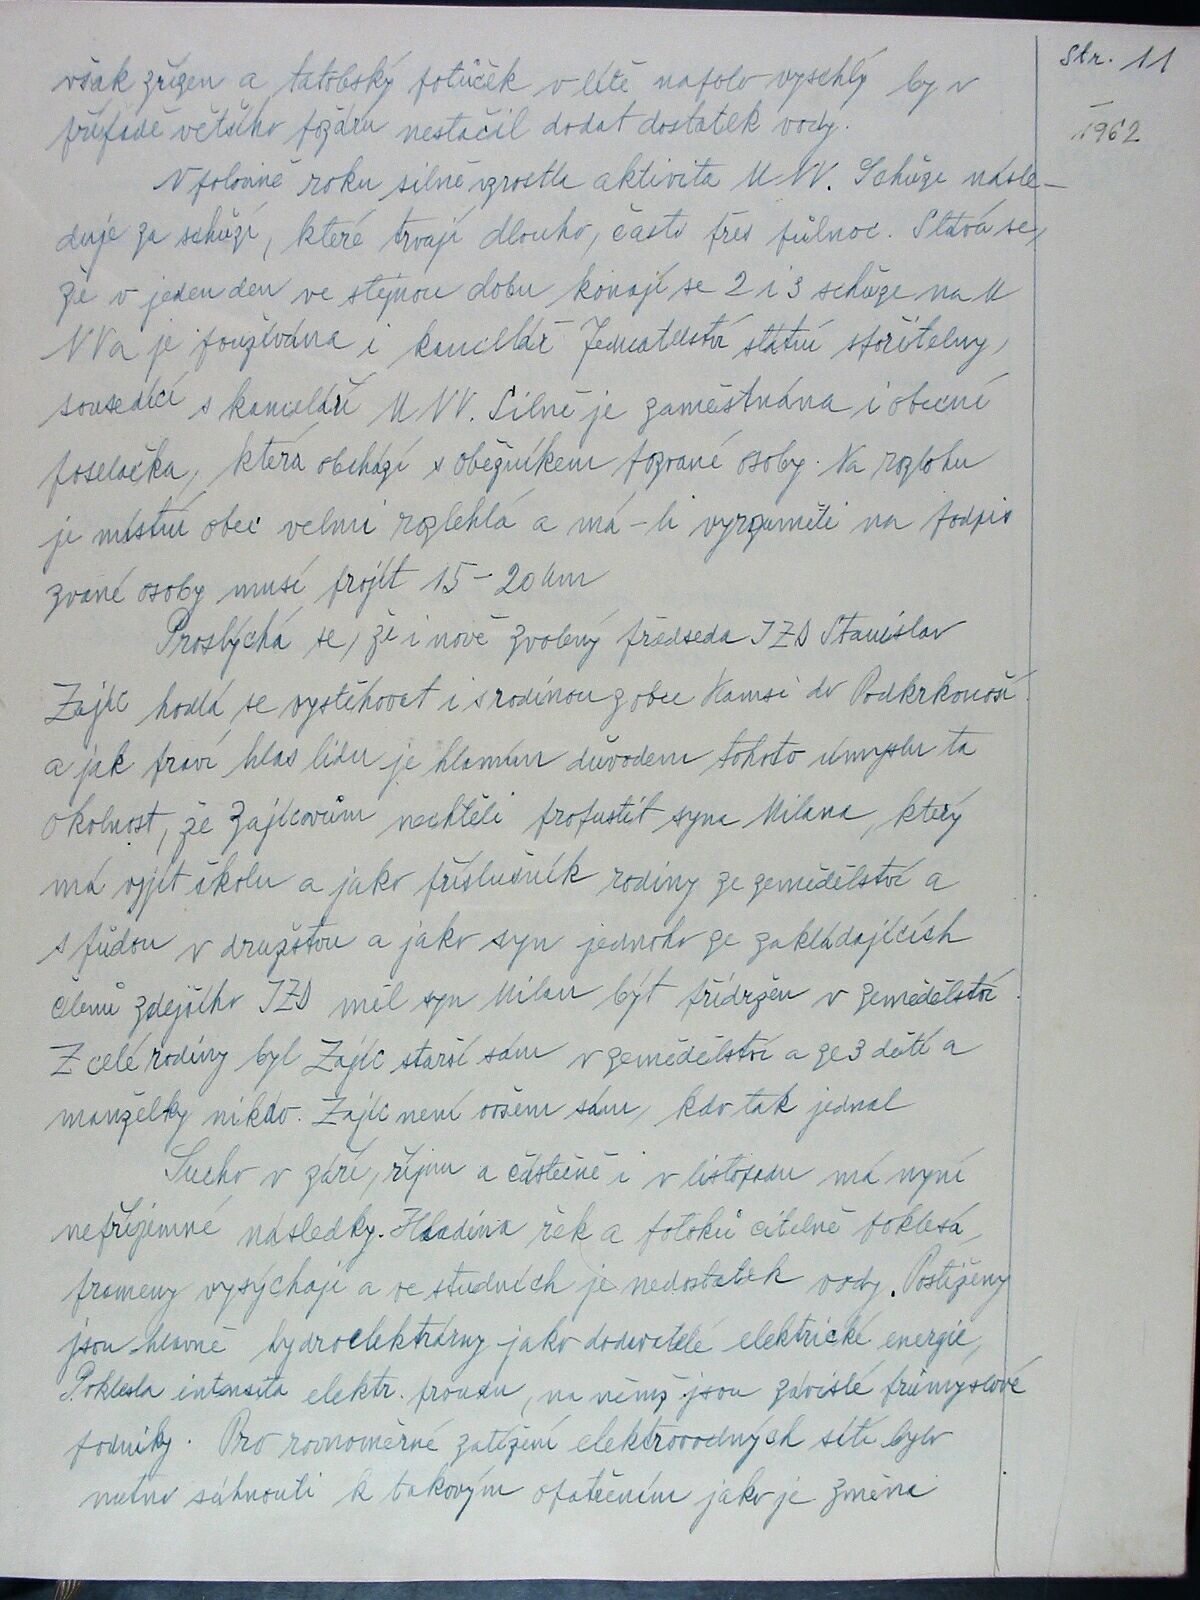 Str. 11
1962
však zřízen a tatobský potůček v létě napolo vyschlý by v
případě většího požáru nestačil dodat dostatek vody.
V polovině roku silně vzrostla aktivita MNV. Schůze násle-
duje za schůzí, které trvají dlouho, často přes půlnoc. Stává se,
že v jeden den ve stejnou dobu konají se 2 i 3 schůze na M
NVa je používána i kancelář Jednatelství státní spořitelny,
sousedící s kanceláří MNV. Silně je zaměstnána i obecní
poslačka, která obchází s oběžníkem pozvané osoby. Na rozlohu
je místní obec velmi rozlehlá a má-li vyrozuměti na podpis
zvané osoby musí projít 15-20 km
Proslýchá se, že i nově zvolený předseda JZD Stanislav
Zajíc hodlá se vystěhovat i s rodinou z obce kamsi do Podkrkonoší
a jak praví hlas lidu je hlavním důvodem tohoto úmyslu ta
okolnost, že Zajícovům nechtěli propustit syna Milana, který
má vyjít školu a jako příslušník rodiny ze zemědělství a
s půdou v družstvu a jako syn jednoho ze zakládajících
členů zdejšího JZD měl syn Milan být přidržen v zemědělství
Z celé rodiny byl Zajíc starší sám v zemědělství a ze 3 dětí a
manželky nikdo. Zajíc není ovšem sám, kdo tak jednal
Sucho v září, říjnu a částečně i v listopadu má nyní
nepříjemné následky. Hladina řek a potoků citelně poklesá,
prameny vysýchají a ve studních je nedostatek vody. Postiženy
jsou hlavně hydroelektrárny jako dodavatelé elektrické energie,
Poklesla intensita elektr. proudu, na němž jsou závislé průmyslové
podniky. Pro rovnoměrné zatížení elektrovodných sítí bylo
nutno sáhnouti k takovým opatřením jako je změna